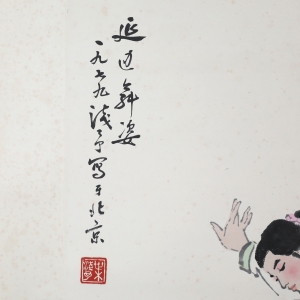 延边舞姿
一九七九浅予写于北京